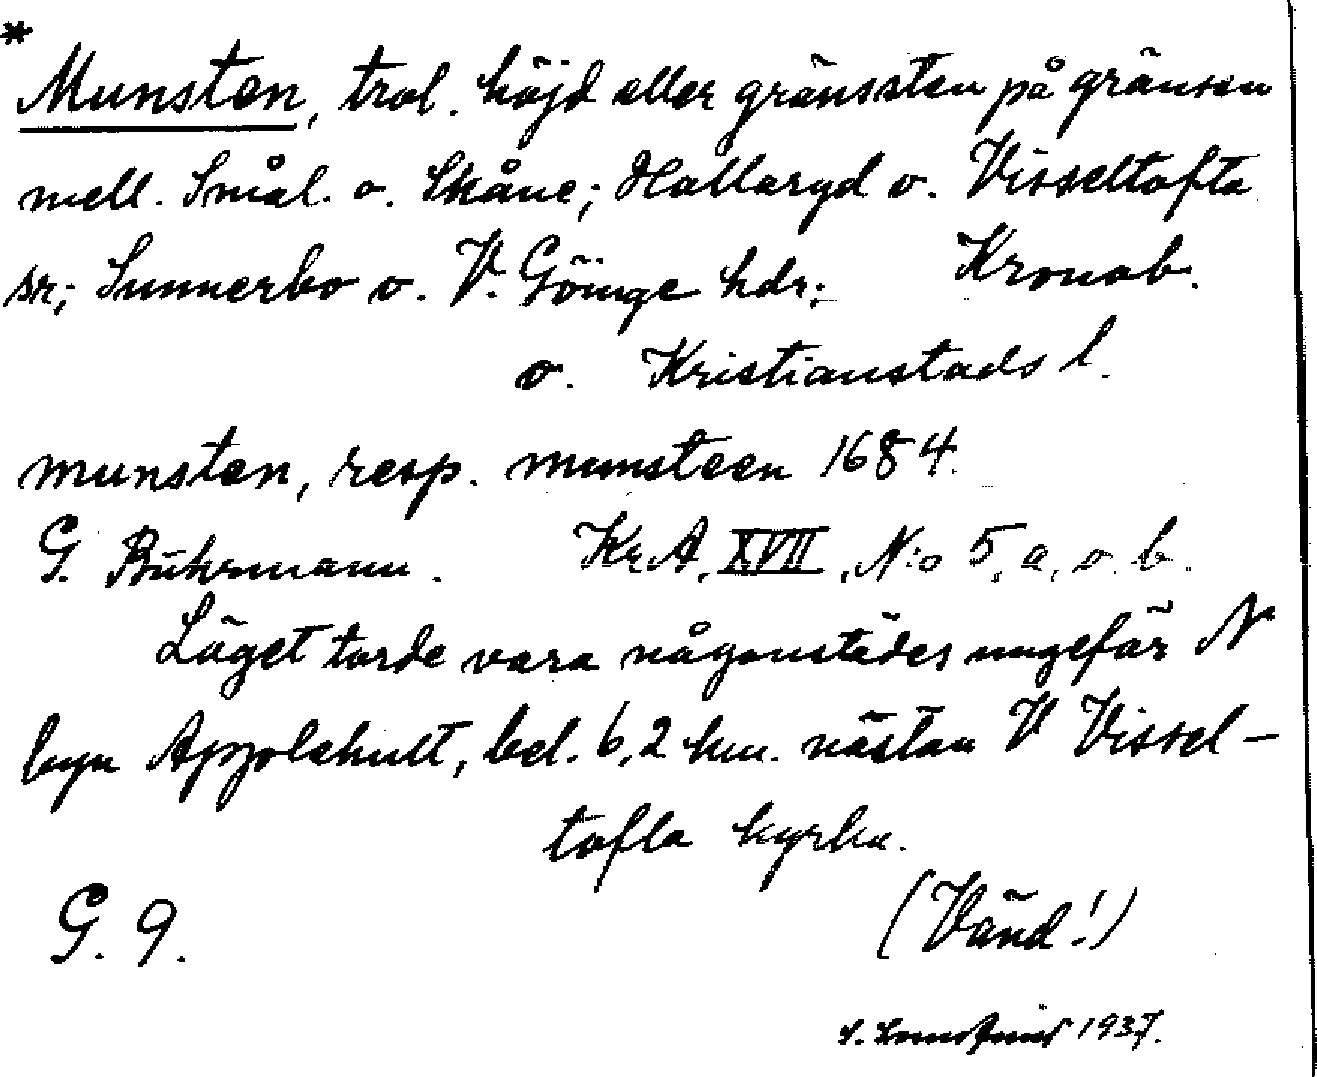 *
Munsten, trol. höjd eller gränssten på gränsen
mell. Smål. o. Skåne; Hallaryd o. Visseltofta
sr; Sunnerbo o. V. Göinge hdr; Kronob.
o. Kristianstads l.
munsten, resp. munsteen 1684.
G. Buhrmann. Kr.A. XVII, N:o 5, a, o. b.
Läget torde vara någonstädes ungefär N
byn Applehult, bel. 6,2 km. nästan V Vissel-
tofta kyrka.
G. 9. (Vänd!)
1937.